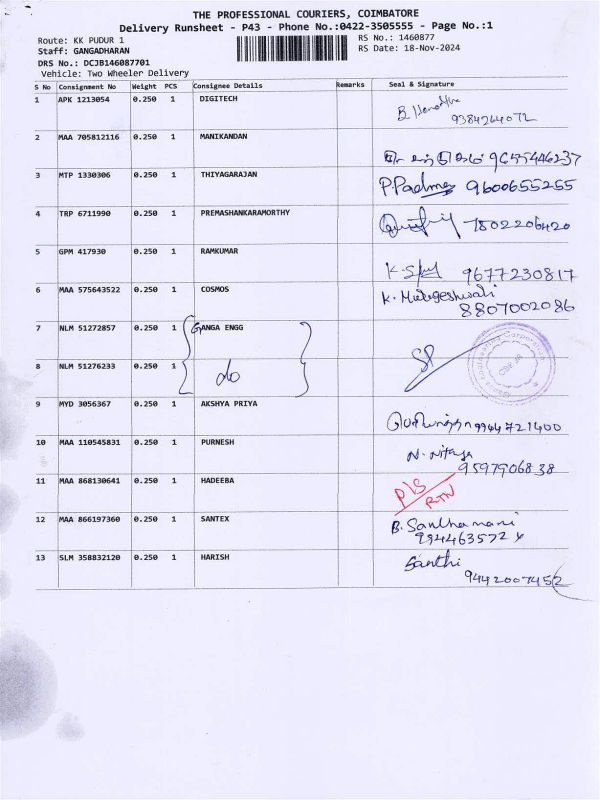 THE PROFESSIONAL COURIERS, COIMBATORE
Delivery Runsheet - P43 - Phone No.:0422-3505555 - Page No.:1
Route: KK PUDUR 1 RS No.: 1460877
Staff: GANGADHARAN RS Date: 18-Nov-2024
DRS No.: DCJB146087701
Vehicle: Two Wheeler Delivery
S No Consignment No Weight PCS Consignee Details Remarks Seal & Signature
1 APK 1213054 0.250 1 DIGITECH
9384264072
2 MAA 705812116 0.250 1 MANIKANDAN
9655446237
3 MTP 1330306 0.250 1 THIYAGARAJAN
P.Padma 9600655255
4 TRP 6711990 0.250 1 PREMASHANKARAMORTHY
7502206420
5 GPM 417930 0.250 1 RAMKUMAR
9677230817
6 MAA 575643522 0.250 1 COSMOS
K. Murugeshwari
8807002086
7 NLM 51272857 0.250 1 GANGA ENGG
8 NLM 51276233 0.250 1 do
9 MYD 3056367 0.250 1 AKSHYA PRIYA
9944721400
10 MAA 110545831 0.250 1 PURNESH
N. Nithya
9597906838
11 MAA 868130641 0.250 1 HADEEBA
P/S
RTN
12 MAA 866197360 0.250 1 SANTEX
B. Santhamani
13 SLM 358832120 0.250 1 HARISH
Santhi
9442007452